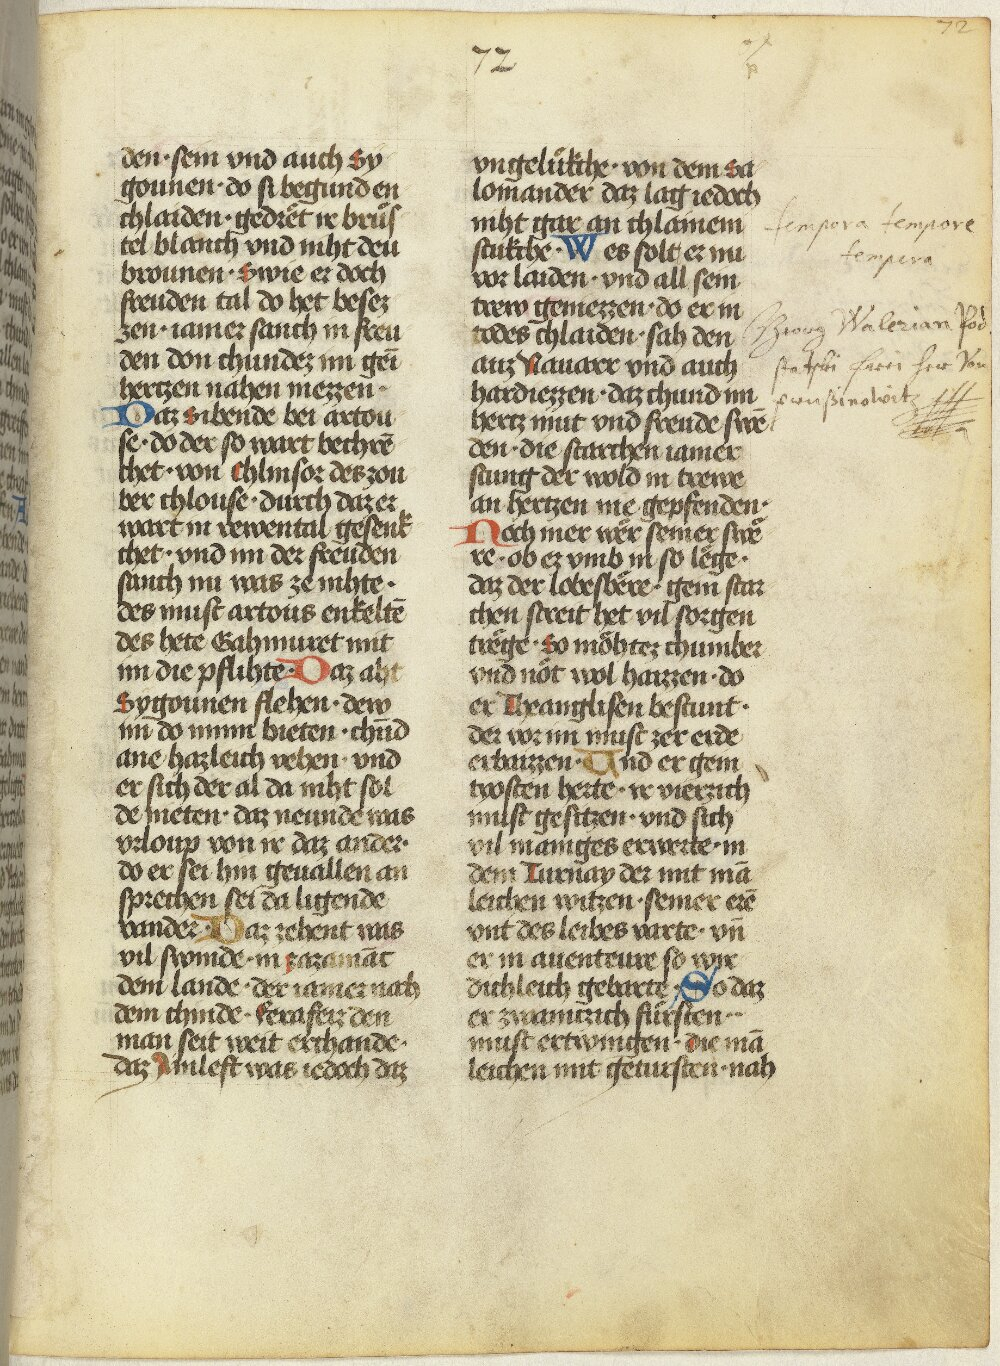 72
72
den· sein vnd auch Sy
gounen· do si begunden
chlaiden· gedrët ir brüs
tel blanch vnd niht den
brounen· Swie er doch
freuden tal do het besez
zen· iamer sanch in freu
den don chundez im gei
hertzen nahen mezzen·
Daz Sibende bei artou
se· do der so wart bechrē
chet· von Chlinsor des zou
ber chlouse· durch daz er
wart in rewental gesenk
chet· vnd im der freuden
sanch nu was ze nihte·
des must artous enkeltē
des hete Gahmuret mit
im die pflihte· Daz aht
Sygounen flehen· dew
im do minn bieten· chūd
ane hazleich vehen· vnd
er sich der al da niht sol
de nieten· daz neunde was
vrloup von ir daz ander·
do er sei hin geuallen an
sprechen sei da ligende
vander· Daz zehent was
vil swinde· in zazamāt
dem lande· der iamer nach
dem chinde· ferafeiz den
man seit weit erchande·
daz Ainleft was iedoch daz
vngelükche· von dem Sa
lomander daz lag iedoch
niht gar an chlainem
stukche· Wes solt er nu
vor laiden· vnd all sein
trew gemezzen· do er in
todes chlaiden· sah den
auz Nauarr vnd auch
hardiezzen· daz chund im
hertz mut vnd freude swē
den· die starchen iamer
stung der wold in trewe
an hertzen nie gepfenden·
Noch mer wër seiner swë
re· ob ez vmb in so lëge·
daz der lobesbëre· gein star
chen streit het vil sorgen
trëge· So möhtez chumber
vnd nöt wol haizzen· do
er Theanglisen bestunt·
der vor im must zer erde
erbaizzen· Vnd er gein
tyosten herte· ir vierzich
must gesitzen· vnd sich
vil maniges erwerte· in
dem Turnay der mit mā
leichen witzen· seiner erē
vnt des leibes varte· vn̄
er in auenteure so wir
dichleich gebarte· So daz
er zwaintzich fürsten··
must ertwingen· die mā
leichen mit getursten· nah
tempora tempore
tempera
Georg Walerian Pod
statzki freii her Von
prusinowitz